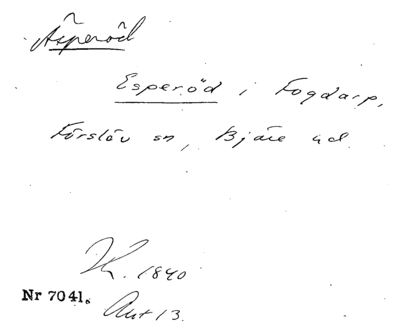 Äsperöd
Esperöd i Fogdarp,
Förslöv sn, Bjäre hd
1840
Nr 7041.
Akt 13.